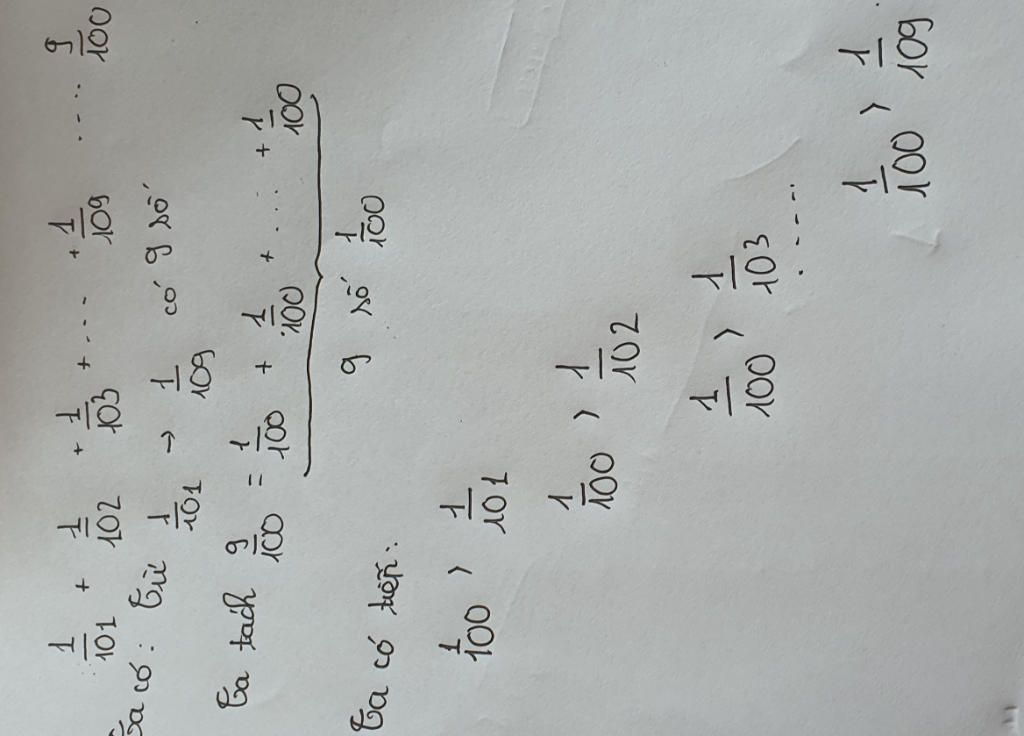 1/101 + 1/102 + 1/103 + .... + 1/109 .... 9/100
Ta có: Từ 1/101 → 1/109 có 9 số
Ta tách 9/100 = 1/100 + 1/100 + .... + 1/100
9 số 1/100
Ta có tiếp:
1/100 > 1/101
1/100 > 1/102
1/100 > 1/103
.....
1/100 > 1/109